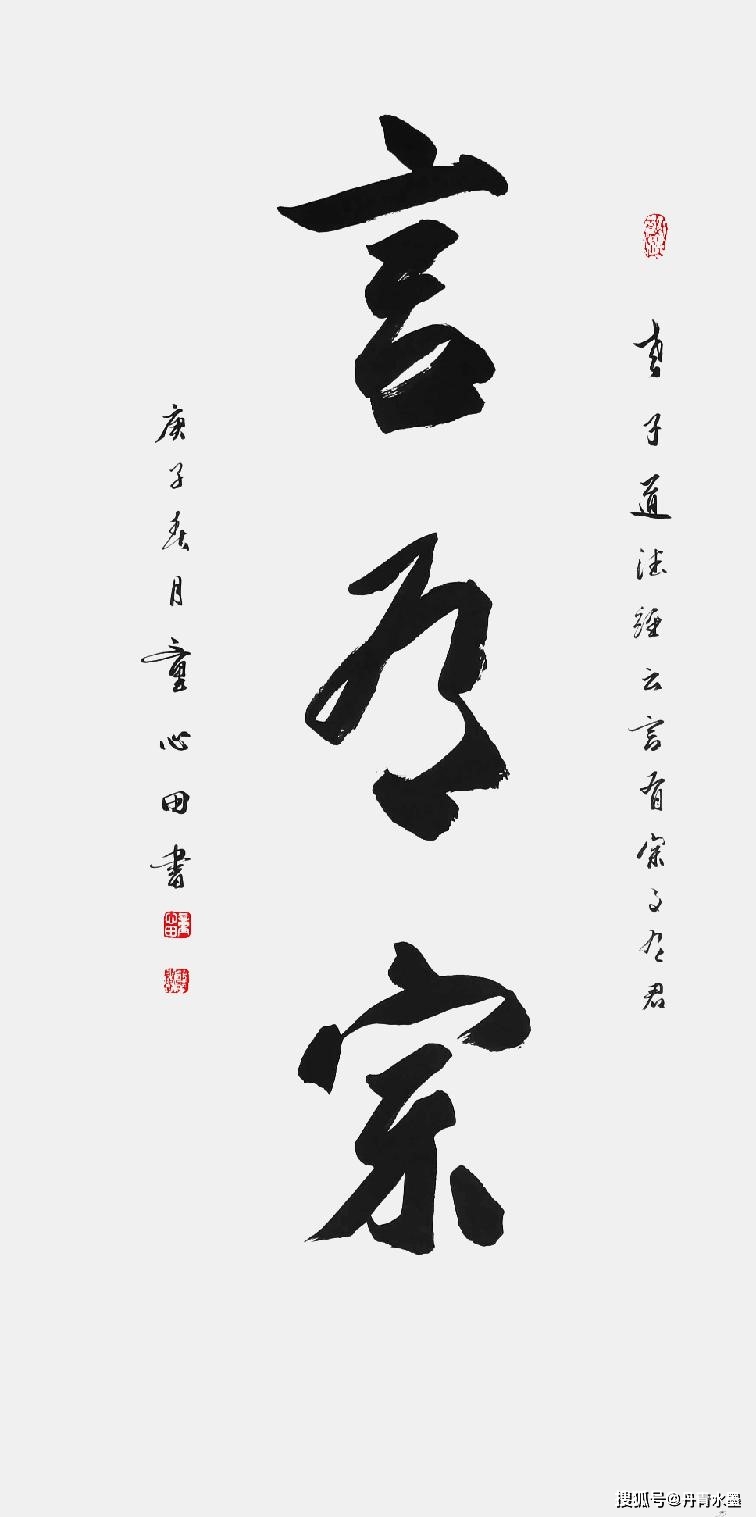 老子道德經云言有宗事有君
言有宗
庚子春月童心田書
搜狐号@丹青水墨